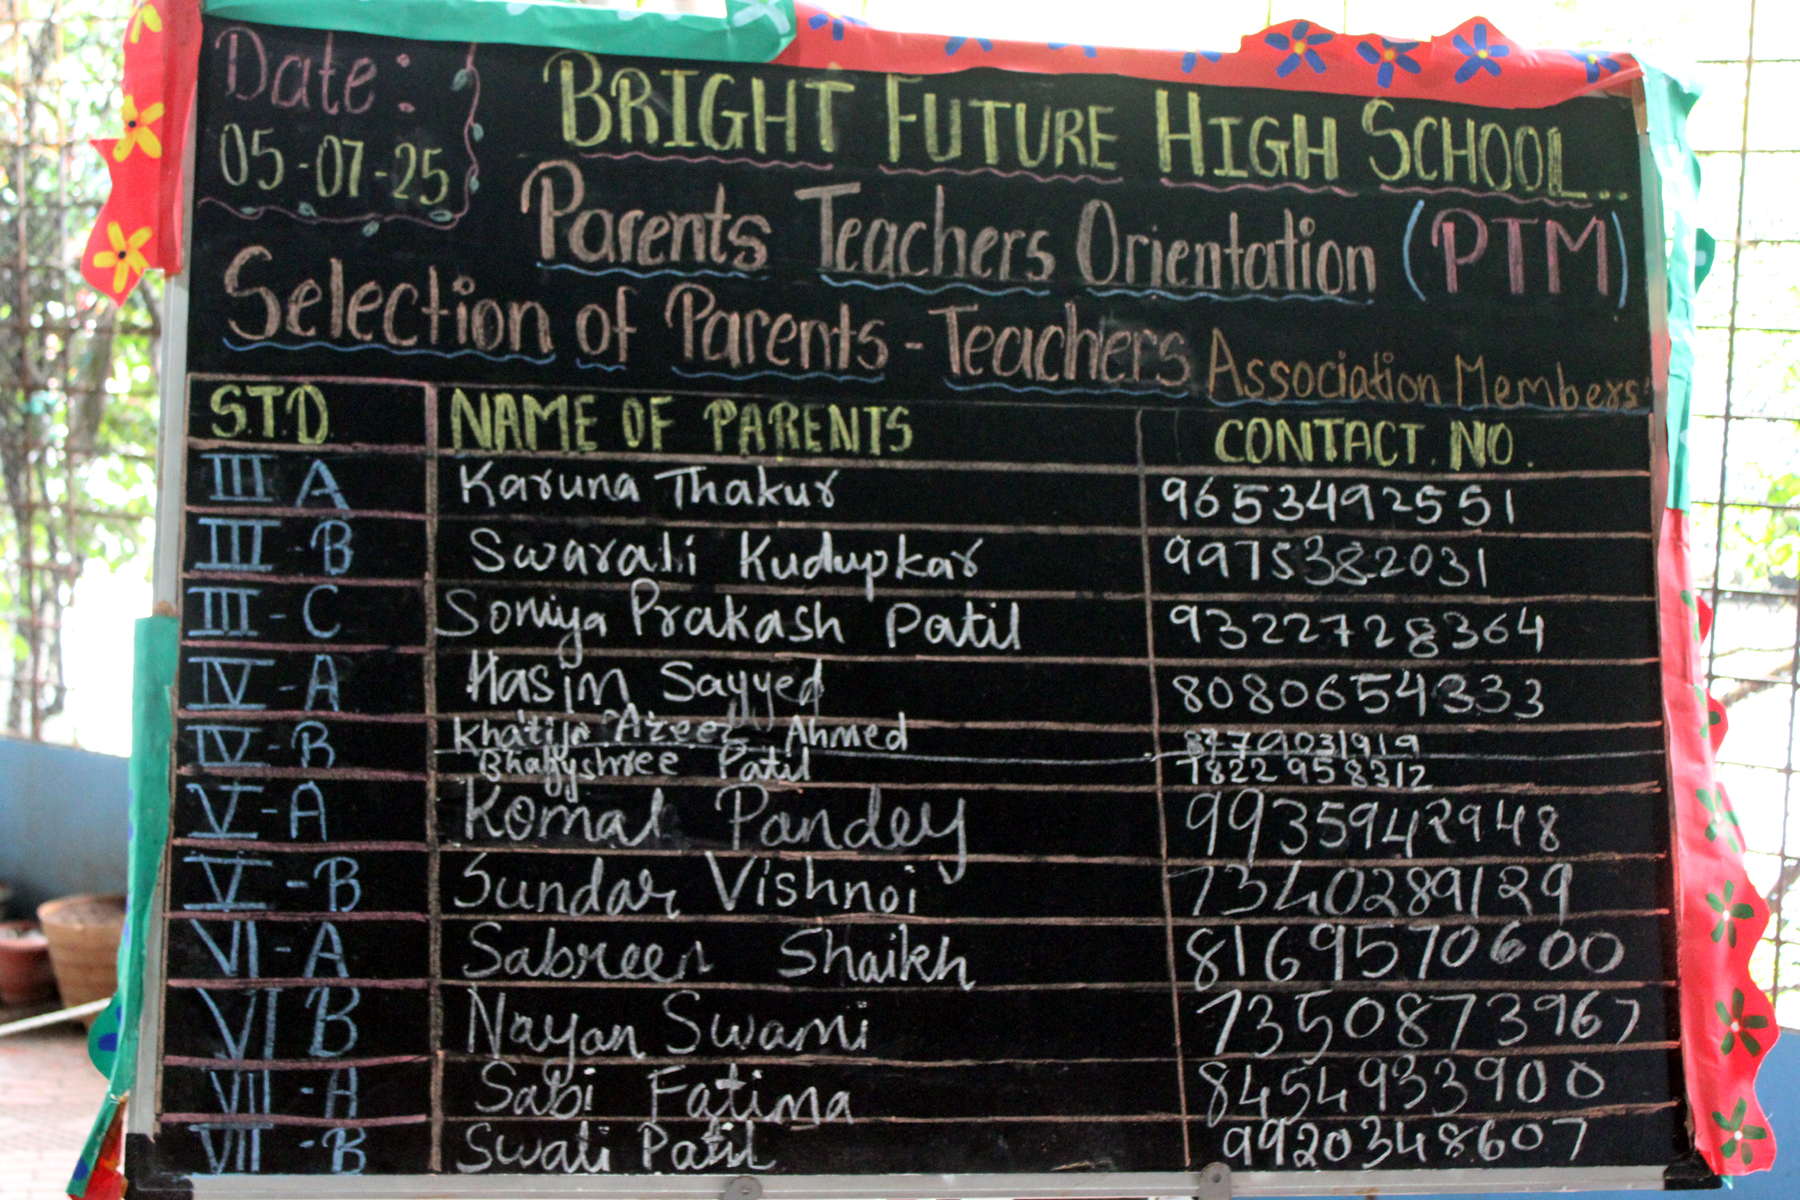 Date:
05-07-25
BRIGHT FUTURE HIGH SCHOOL..
Parents Teachers Orientation (PTM)
Selection of Parents-Teachers Association Members
S.T.D. NAME OF PARENTS CONTACT. NO.
III A Karuna Thakur 9653492551
III-B Swarali Kudupkar 9975382031
III-C Soniya Prakash Patil 9322728364
IV-A Hasim Sayyed 8080654333
IV-B Khatija Azeez Ahmed
Bhagyshree Patil 7822958312
V-A Komal Pandey 9935942948
V-B Sundar Vishnoi 7340289129
VI-A Sabreen Shaikh 8169570600
VI B Nayan Swami 7350873967
VII-A Sabi Fatima 8454933900
VII-B Swati Patil 9920348607